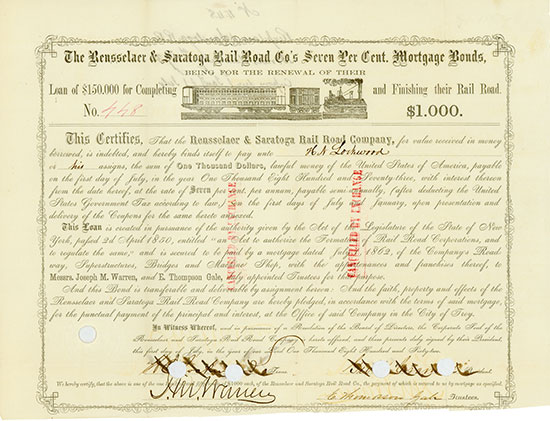 The Rensselaer & Saratoga Rail Road Co's Seven Per Cent. Mortgage Bonds,
BEING FOR THE RENEWAL OF THEIR
Loan of $150.000 for Completing and Finishing their Rail Road.
No. 448 $1.000.
This Certifies, That the Rensselaer & Saratoga Rail Road Company, for value received in money
borrowed, is indebted, and hereby binds itself to pay unto H N Lockwood
or his assigns, the sum of One Thousand Dollars, lawful money of the United States of America, payable
on the first day of July, in the year One Thousand Eight Hundred and Seventy-three, with interest thereon
from the date hereof, at the rate of Seven per cent. per annum, payable semi-annually, (after deducting the United
States Government Tax according to law,) on the first days of July and January, upon presentation and
delivery of the Coupons for the same hereto annexed.
This Loan is created in pursuance of the authority given by the Act of the Legislature of the State of New
York, passed 2d April 1850, entitled "an Act to authorize the Formation of Rail Road Corporations, and
to regulate the same," and is secured to be paid by a mortgage dated July 1862, of the Company's Road
way, Superstructures, Bridges and Machine Shop, with the appurtenances and franchises thereof, to
Messrs. Joseph M. Warren, and E. Thompson Gale, duly appointed Trustees for this purpose.
And this Bond is transferable and deliverable by assignment hereon: And the faith, property and effects of the
Rensselaer and Saratoga Rail Road Company are hereby pledged, in accordance with the terms of said mortgage,
for the punctual payment of the principal and interest, at the Office of said Company in the City of Troy.
In Witness Whereof, and in pursuance of a Resolution of the Board of Directors, the Corporate Seal of the
Rensselaer and Saratoga Rail Road Company is hereto affixed, and these presents duly signed by their President,
this first day of July, in the year of One Thousand Eight Hundred and Sixty-two.
We hereby certify, that the above is one of the $1000 each, of the Rensselaer and Saratoga Rail Road Co., the payment of which is secured to us by mortgage as specified.
J M Warren
E. Thompson Gale Trustees.
CANCELLED BY EXCHANGE
CANCELLED BY EXCHANGE